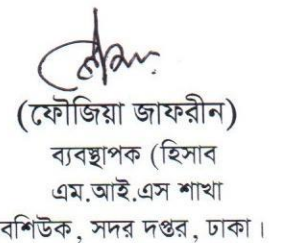 (ফৌজিয়া জাফরীন)
ব্যবস্থাপক (হিসাব
এম.আই.এস শাখা
বশিউক, সদর দপ্তর, ঢাকা।